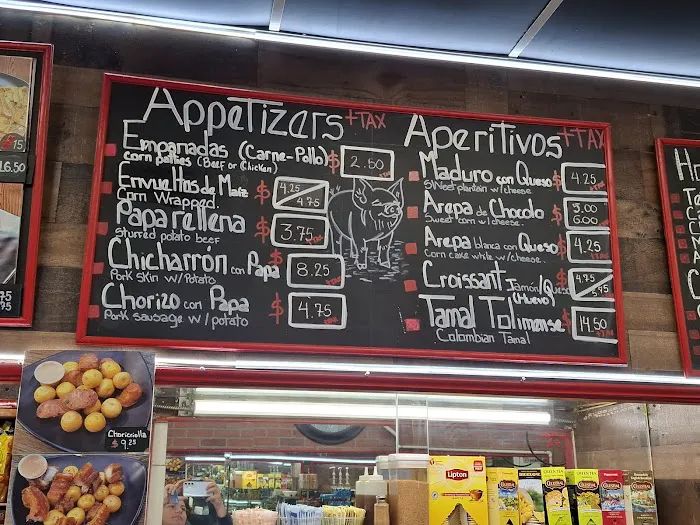 Appetizers +TAX
Empanadas (Carne-Pollo) $ 2.50
corn patties (Beef or Chicken)
Envueltos de Maiz $ 4.25 4.75
Corn Wrapped.
Papa rellena $ 3.75
Sturred potato beef
Chicharrón con Papa $ 8.25
Pork skin w/ Potato
Chorizo con Papa $ 4.75
Pork sausage w/ potato
Aperitivos +TAX
Maduro con Queso $ 4.25
Sweet plantain w/cheese.
Arepa de Chocolo $
Sweet corn w/cheese. 6.00
Arepa blanca con Queso $ 4.25
Corn cake while w/cheese.
Croissant Jamón/Queso $ 4.75
(Huevo)
Tamal Tolimense $ 14.50
Colombian Tamal
Choriceiolla
$ 9.25
Lipton